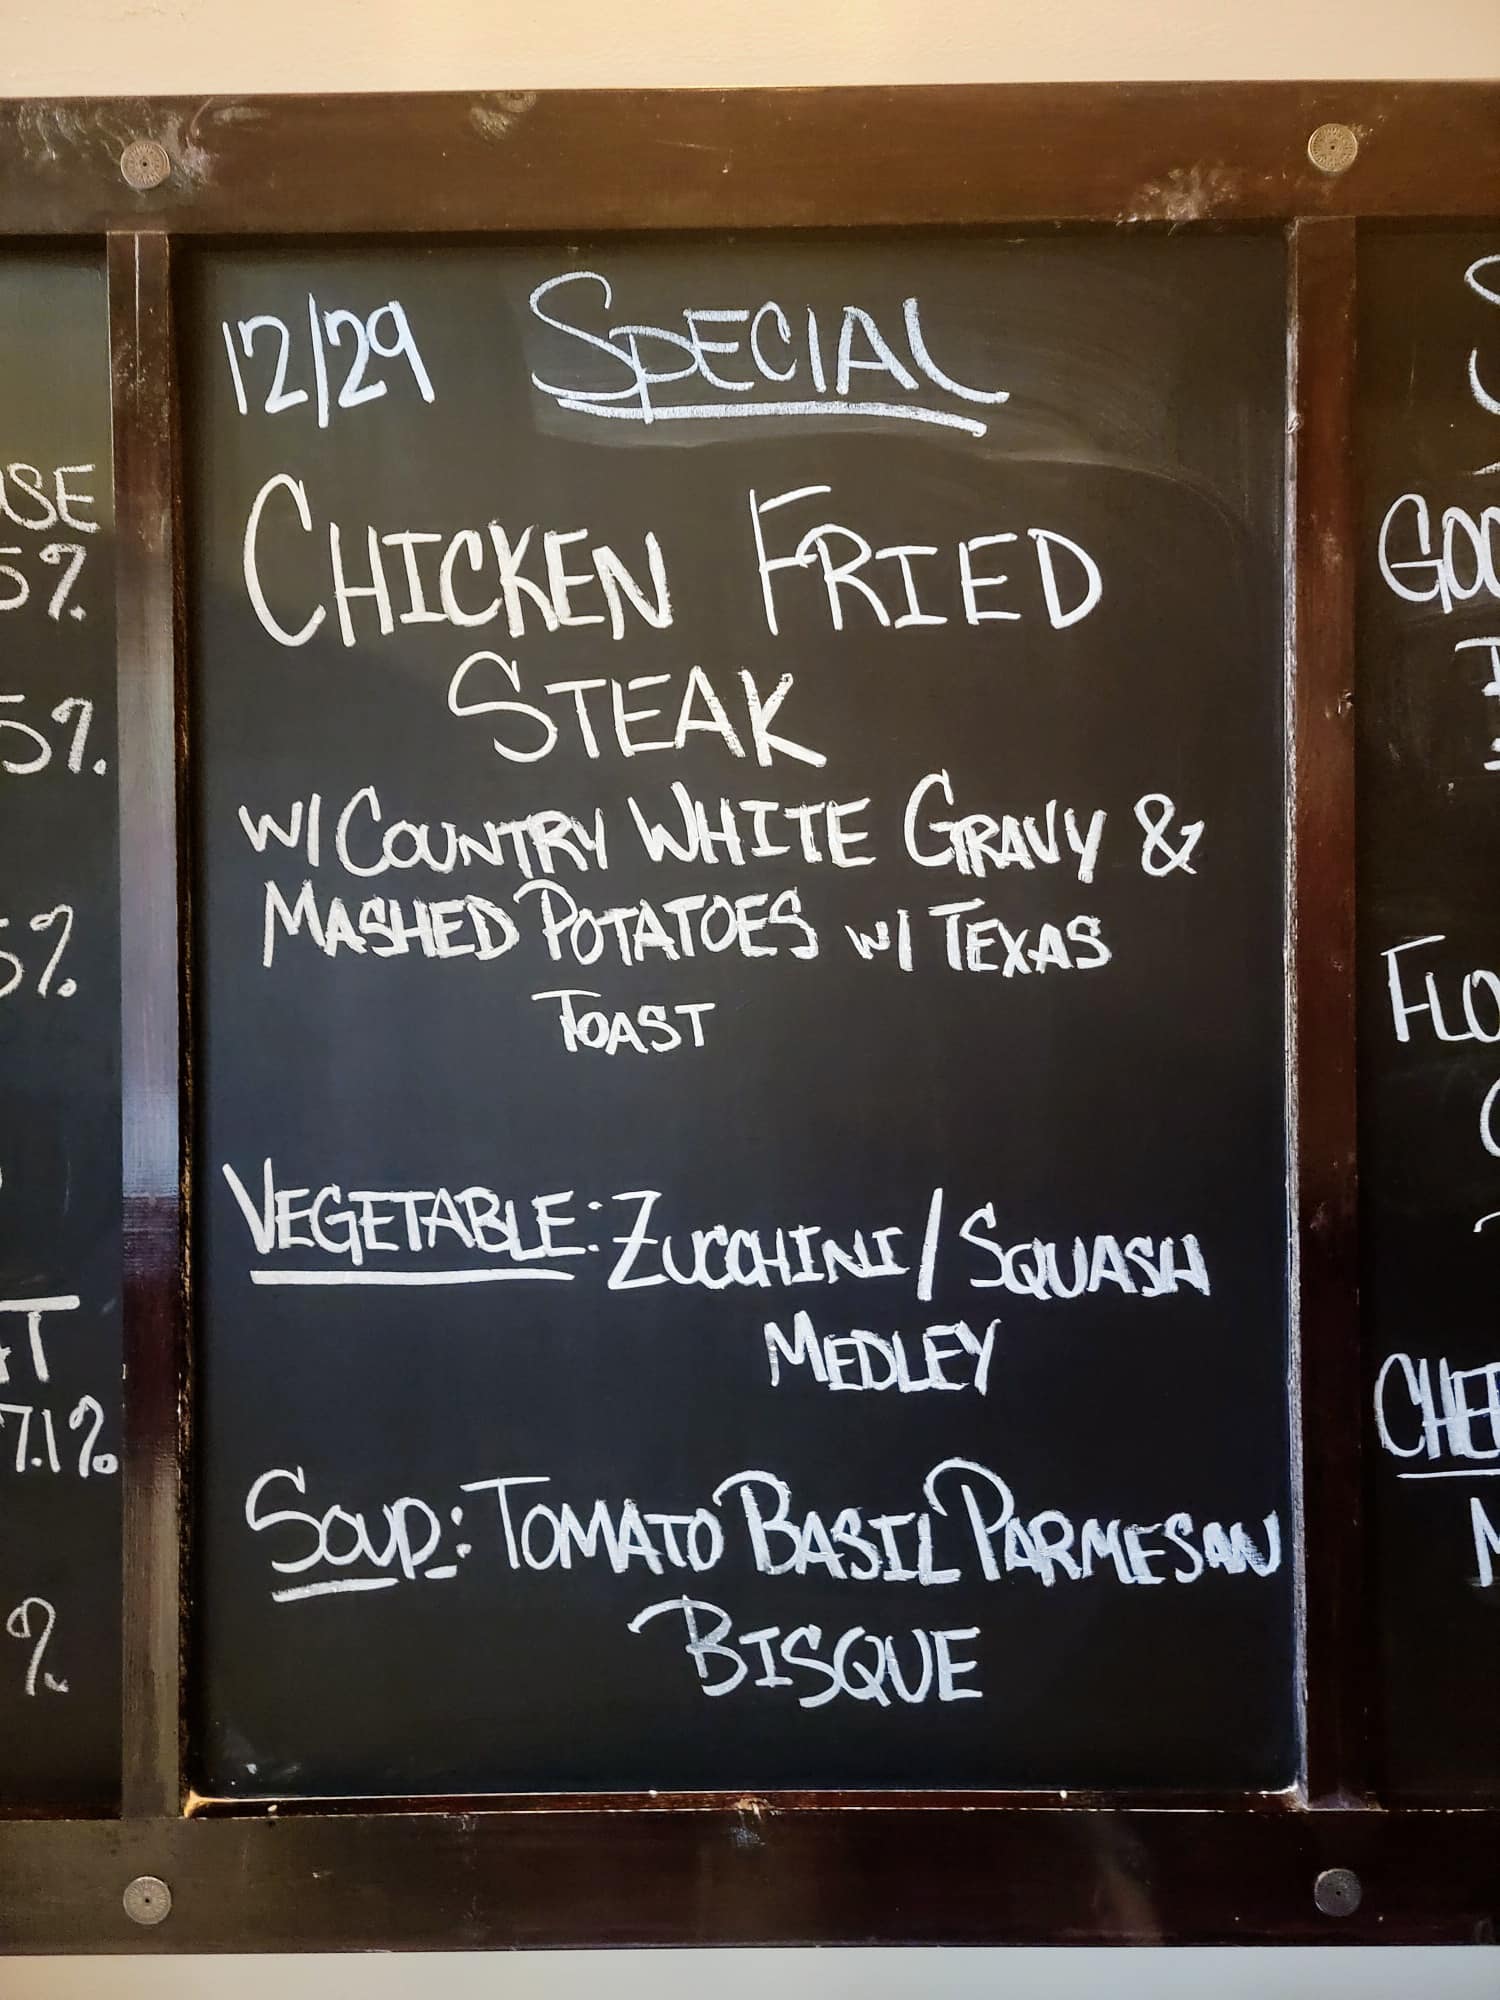 12/29 SPECIAL
CHICKEN FRIED
STEAK
W/ COUNTRY WHITE GRAVY &
MASHED POTATOES W/ TEXAS
TOAST
VEGETABLE: ZUCCHINI/SQUASH
MEDLEY
SOUP: TOMATO BASIL PARMESAN
BISQUE
SE
5%
5%.
5%
T
7.1%
%
GOO
FLO
CHE
M